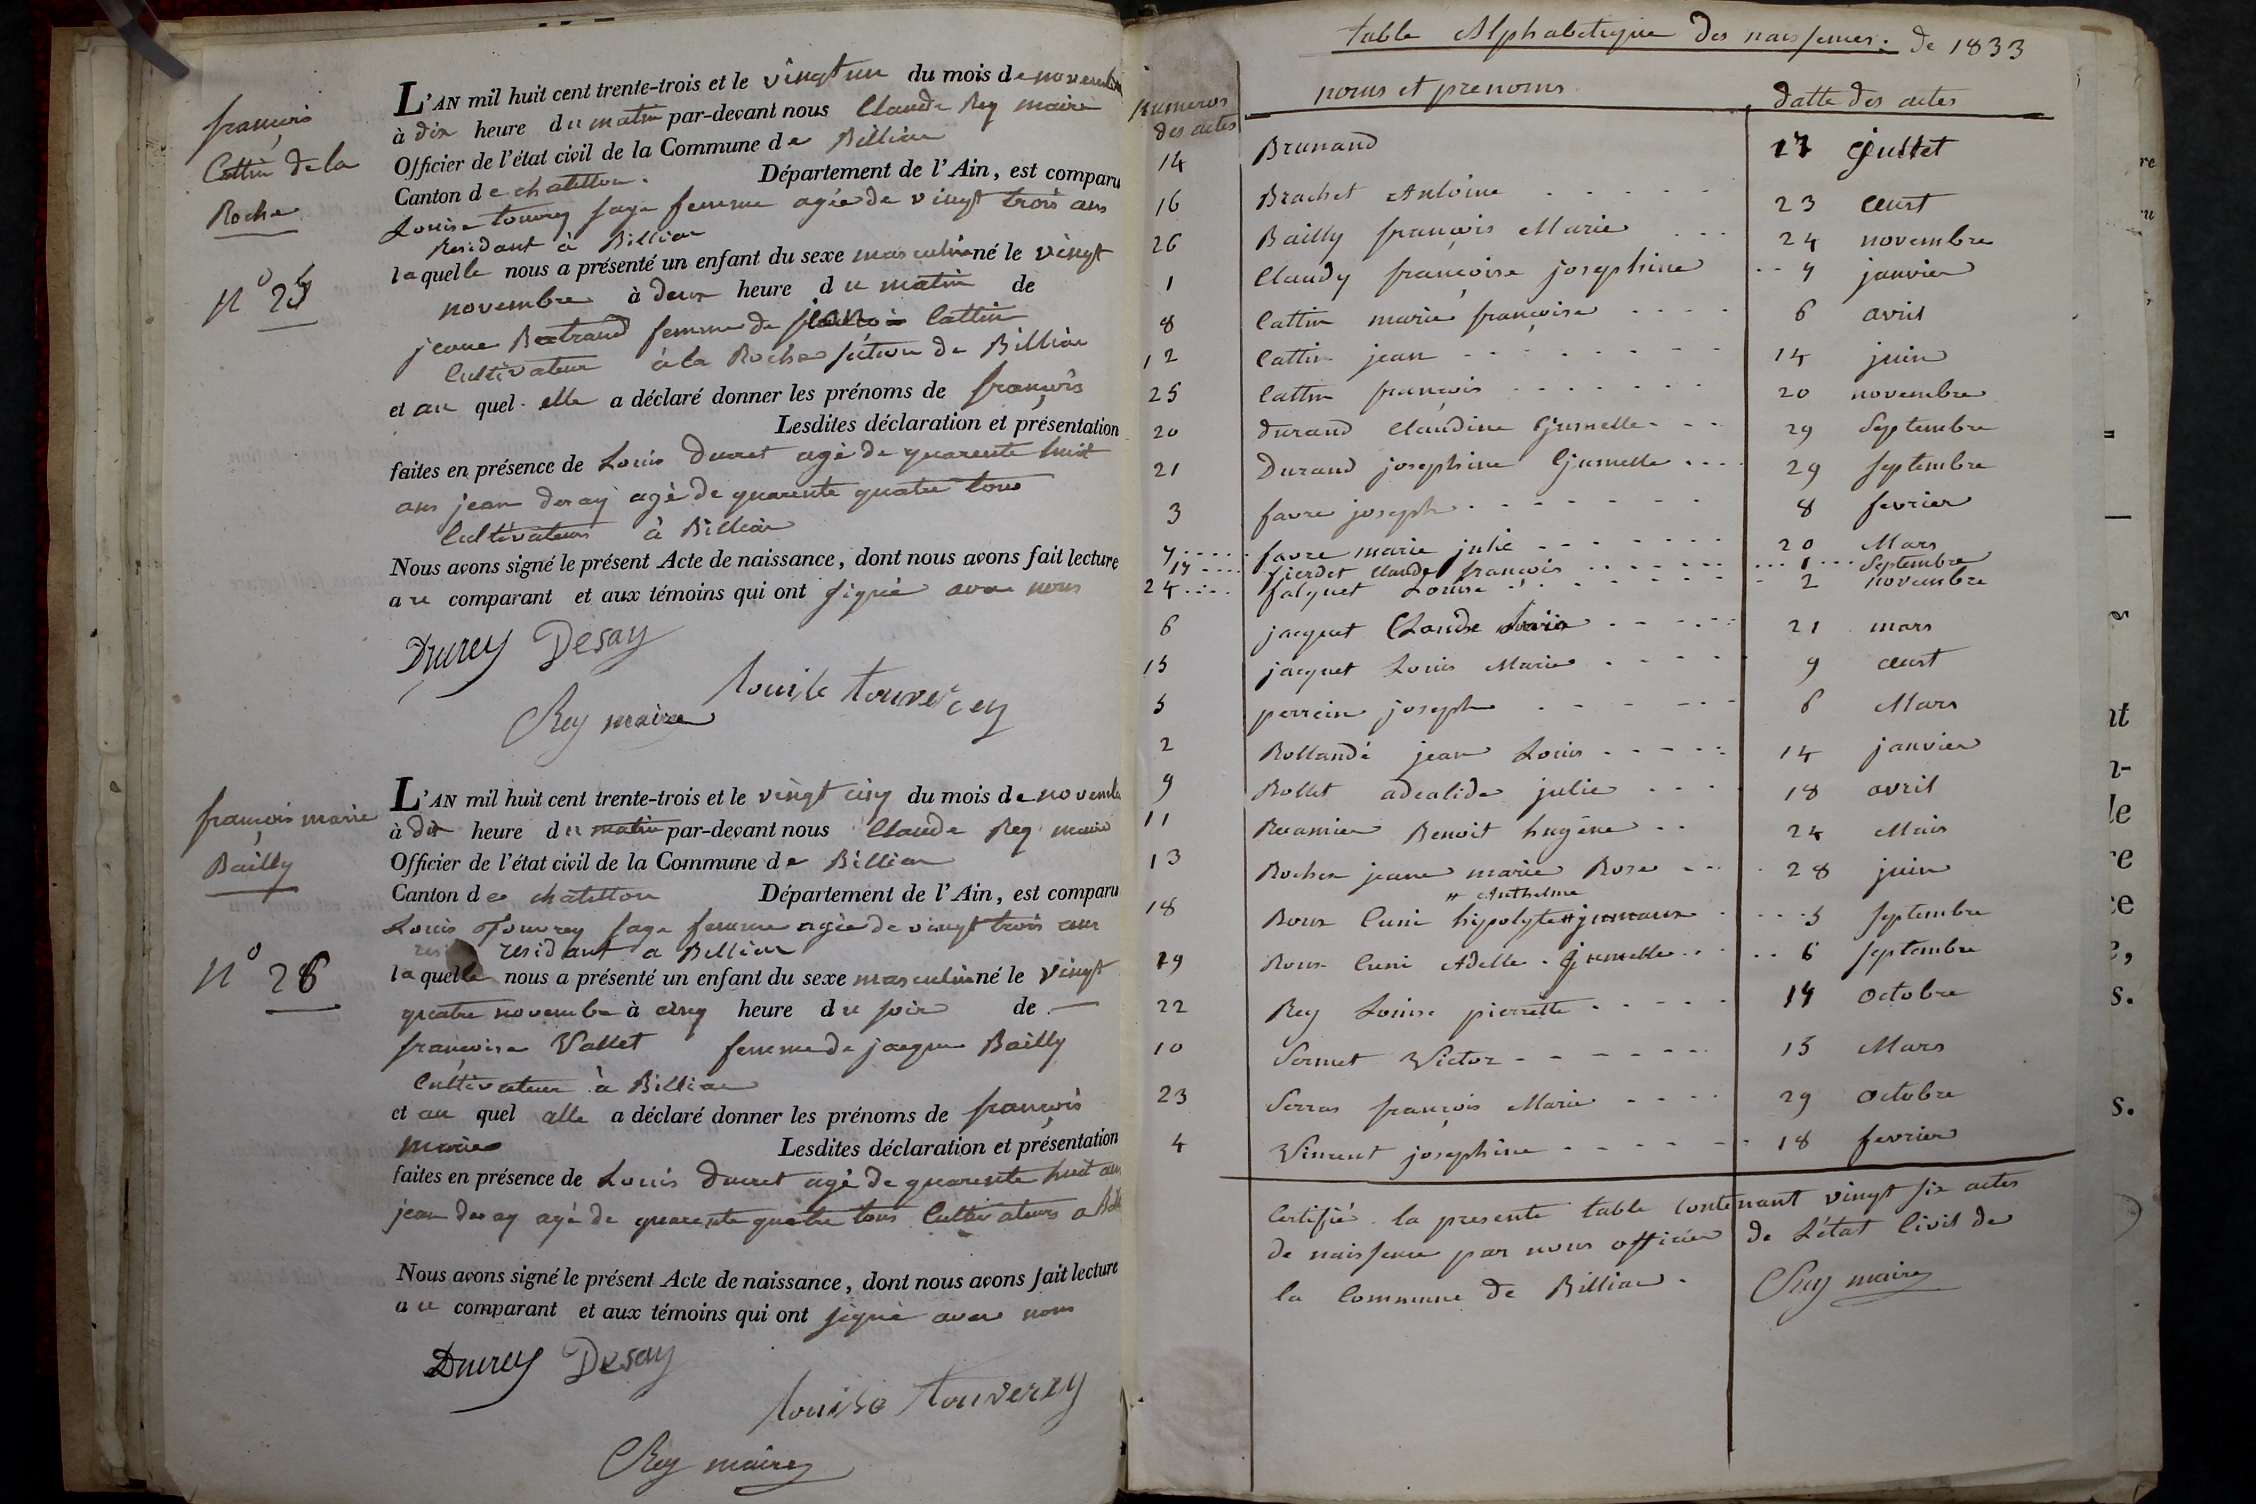 françois
Cattin de la
Roche
N° 25
L'AN mil huit cent trente-trois et le vingt un du mois de novembre
à dix heure du matin par-devant nous Claude Rey maire
Officier de l'état civil de la Commune de Billiac
Canton de chatillon. Département de l'Ain, est comparu
Louise touvrey sage femme agée de vingt trois ans
Residant à Billiac
laquelle nous a présenté un enfant du sexe masculin né le vingt
novembre à deux heure du matin de
jeane Bertrand femme de Cattin
Cultivateur à la Roche section de Billiac
et au quel elle a déclaré donner les prénoms de françois
Lesdites déclaration et présentation
faites en présence de Louis Ducret agé de quarente huit
ans jean desay agé de quarente quatre tous
Cultivateurs à Billiac
Nous avons signé le présent Acte de naissance, dont nous avons fait lecture
au comparant et aux témoins qui ont signé avec nous
Desay
Rey maire
françois marie
Bailly
N° 26
L'AN mil huit cent trente-trois et le vingt cinq du mois de novembre
à dix heure du matin par-devant nous Claude Rey maire
Officier de l'état civil de la Commune de Billiac
Canton de chatillon Département de l'Ain, est comparu
Louis Touvrey sage femme agée de vingt trois ans
residant a Billiac
laquelle nous a présenté un enfant du sexe masculin né le vingt
quatre novembre à cinq heure du soir de
françoise Vallet femme de jaque Bailly
Cultivateur à Billiac
et au quel alle a déclaré donner les prénoms de françois
marie Lesdites déclaration et présentation
faites en présence de Louis Ducret agé de quarente huit ans
jean desay agé de quarente quatre tous Cultivateurs a
Nous avons signé le présent Acte de naissance, dont nous avons fait lecture
au comparant et aux témoins qui ont signé avec nous
Desay
Louise Touverey
Rey maire
Table Alphabetique des naissences. de 1833
Numeros des actes noms et prenoms datte des actes
14 Brunand 17 juillet
16 Brachet Antoine 23 aust
26 Bailly françois Marie 24 novembre
1 Claudy françoise josephine 4 janvier
8 Cattin marie françoise 6 avril
12 Cattin jean 14 juin
25 Cattin françois 20 novembre
20 Durand Claudine Gjumelle 29 Septembre
21 Durand josephine Gjumelle 29 Septembre
3 favre joseph 8 fevrier
7 favre marie julie 20 Mars
17 fierdet Claude françois 1 Septembre
24 falquet Louise 2 novembre
6 jacquet Claude 21 mars
15 jacquet Louis Marie 9 aust
5 perrein joseph 6 Mars
2 Rollandé jean Louis 14 janvier
9 Rollet adealide julie 18 avril
11 Recamier Benoit hugène 24 Mais
13 Rocher jeane marie Rose 28 juin
# Anthelme
18 Roux Cuni hypolyte # jumeaux 5 Septembre
19 Roux Cuni Adelle Gjumelle 6 Septembre
22 Rey Louise pierrette 14 octobre
10 Sermet Victor 15 Mars
23 Serras françois Marie 29 octobre
4 Vincent josephine 18 fevrier
Certifié la presente table contenant vingt six actes
de naissence par nous officier de L'état Civil de
la Commune de Billiac. Rey maire